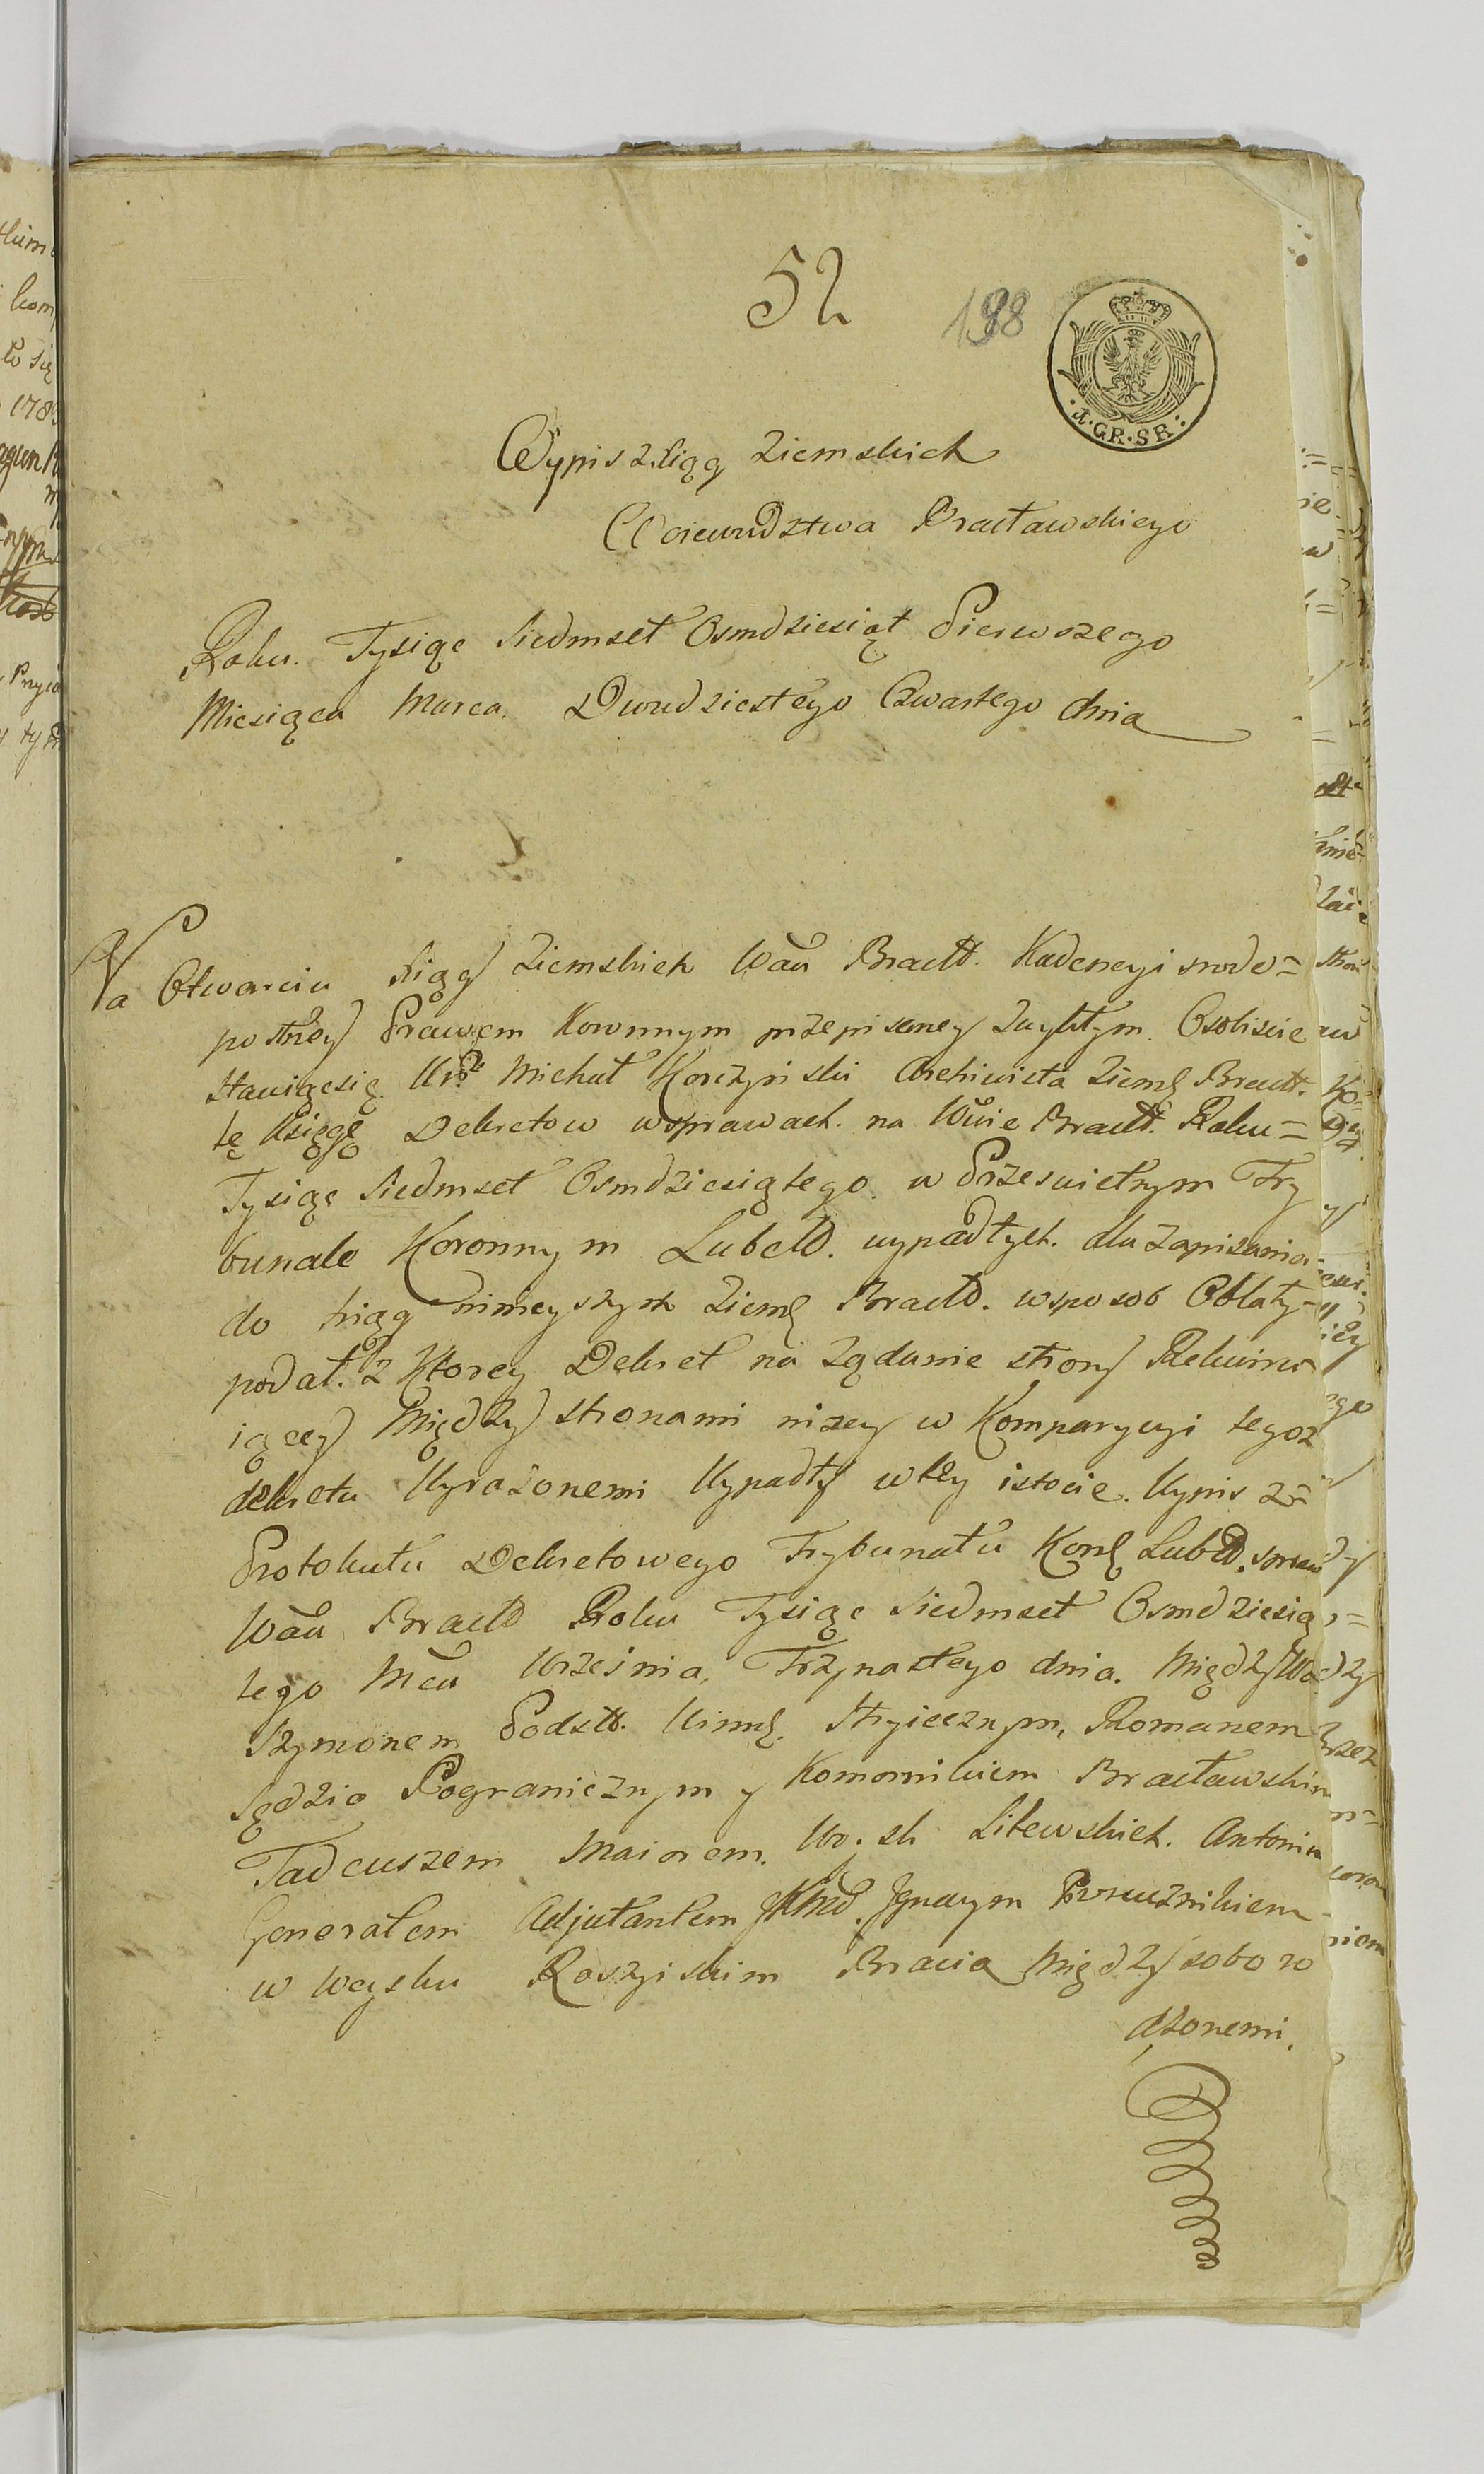 52
198
4.GR.SR.
Wypis z xiąg Ziemskich
Woiewudztwa Bracławskiego
Roku Tysiąc Siedmset Osmdziesiąt Pierwszego
Miesiąca Marca. Dwudziestego Czwartego dnia
Na Otwarciu xiąg Ziemskich Wda Bracld. Kadencyi srodo=
postney Prawem Koronnym przepisaney zwykłym. Osobiscie
Stawiąc się Ur. Michał Korczynski Archiwista Ziems Bractt.
tę Księgę Dekretow w sprawach. na Wwie Bractt. Roku =
Tysiąc Siedmset Osmdziesiątego w Przeswietnym Try
bunale Koronnym Lubeld. wypadłych. dla Zapisania
do xiąg ninieyszych Ziems Bracld. w sposob Oblaty
podał. z Ktorey Dekret na żądanie strony Rekwiru
iącey Między stronami niżey w Komparycyi tegoz
dekretu Wyrażonemi Wypadły w tey istocie. Wypis z=
Protokułu Dekretowego Trybunału Kors Lubeld. spraw
Wda Bracld Roku Tysiąc Siedmset Osmdziesią
tego Mca Wrzesnia, Trzynastego dnia. Między Ww
Szymonem Podstt. Winns. Stryiecznym, Romanem
Sędzio Pogranicznym y Komornikiem Bracławskim
Tadeuszem Maiorem. Woysk Litewskich. Antonim
Generałem Adjutantem JKMci. Jgnacym Porucznikiem
w Woysku Roszyiskim Bracia Między sobo ro
dzonemi.